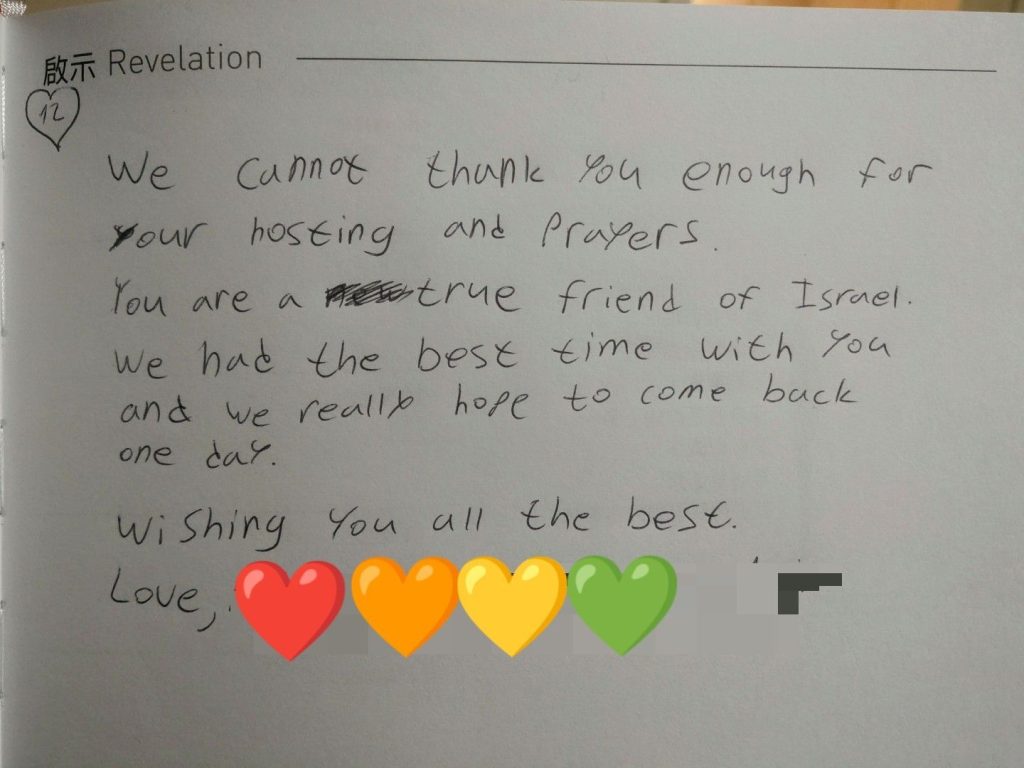 啟示 Revelation
12
We cannot thank you enough for
your hosting and prayers.
You are a true friend of Israel.
We had the best time with you
and we really hope to come back
one day.
Wishing you all the best.
Love,